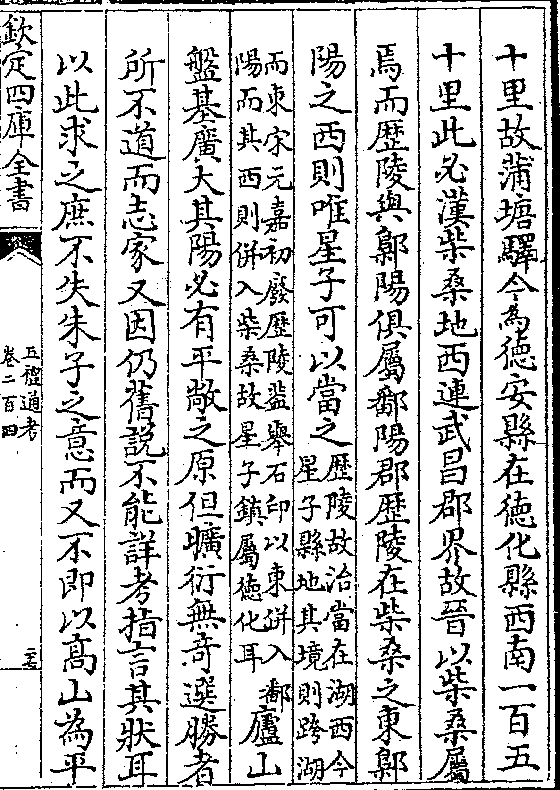 十里故蒲塘驛今為德安縣在德化縣西南一百五
十里此必漢柴桑地西連武昌郡界故晉以柴桑屬
焉而歷陵與鄡陽俱屬鄱陽郡歷陵在柴桑之東鄡
陽之西則唯星子可以當之
歷陵故治當在湖西今
星子縣地其境則跨湖
而東宋元嘉初廢歷陵葢舉石印以東併入鄱
陽而其西則併入柴桑故星子鎮屬德化耳
廬山
盤基廣大其陽必有平敞之原但曠衍無奇選勝者
所不道而志家又因仍舊說不能詳考指言其狀耳
以此求之庶不失朱子之意而又不即以高山為平
欽定四庫全書
五禮通考
卷二百四